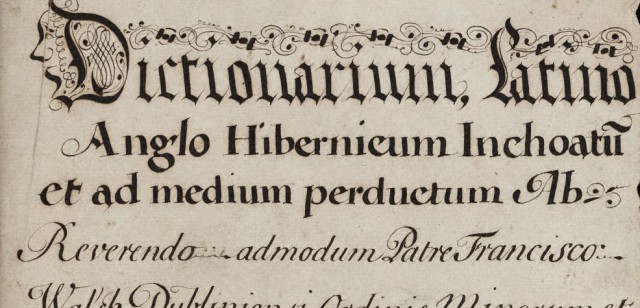 Dictionarium, Latino
Anglo Hibernicum Inchoatū
et ad medium perductum Ab
Reverendo admodum Patre Francisco
Walsh Dubliniensi Ordinis Minorum et